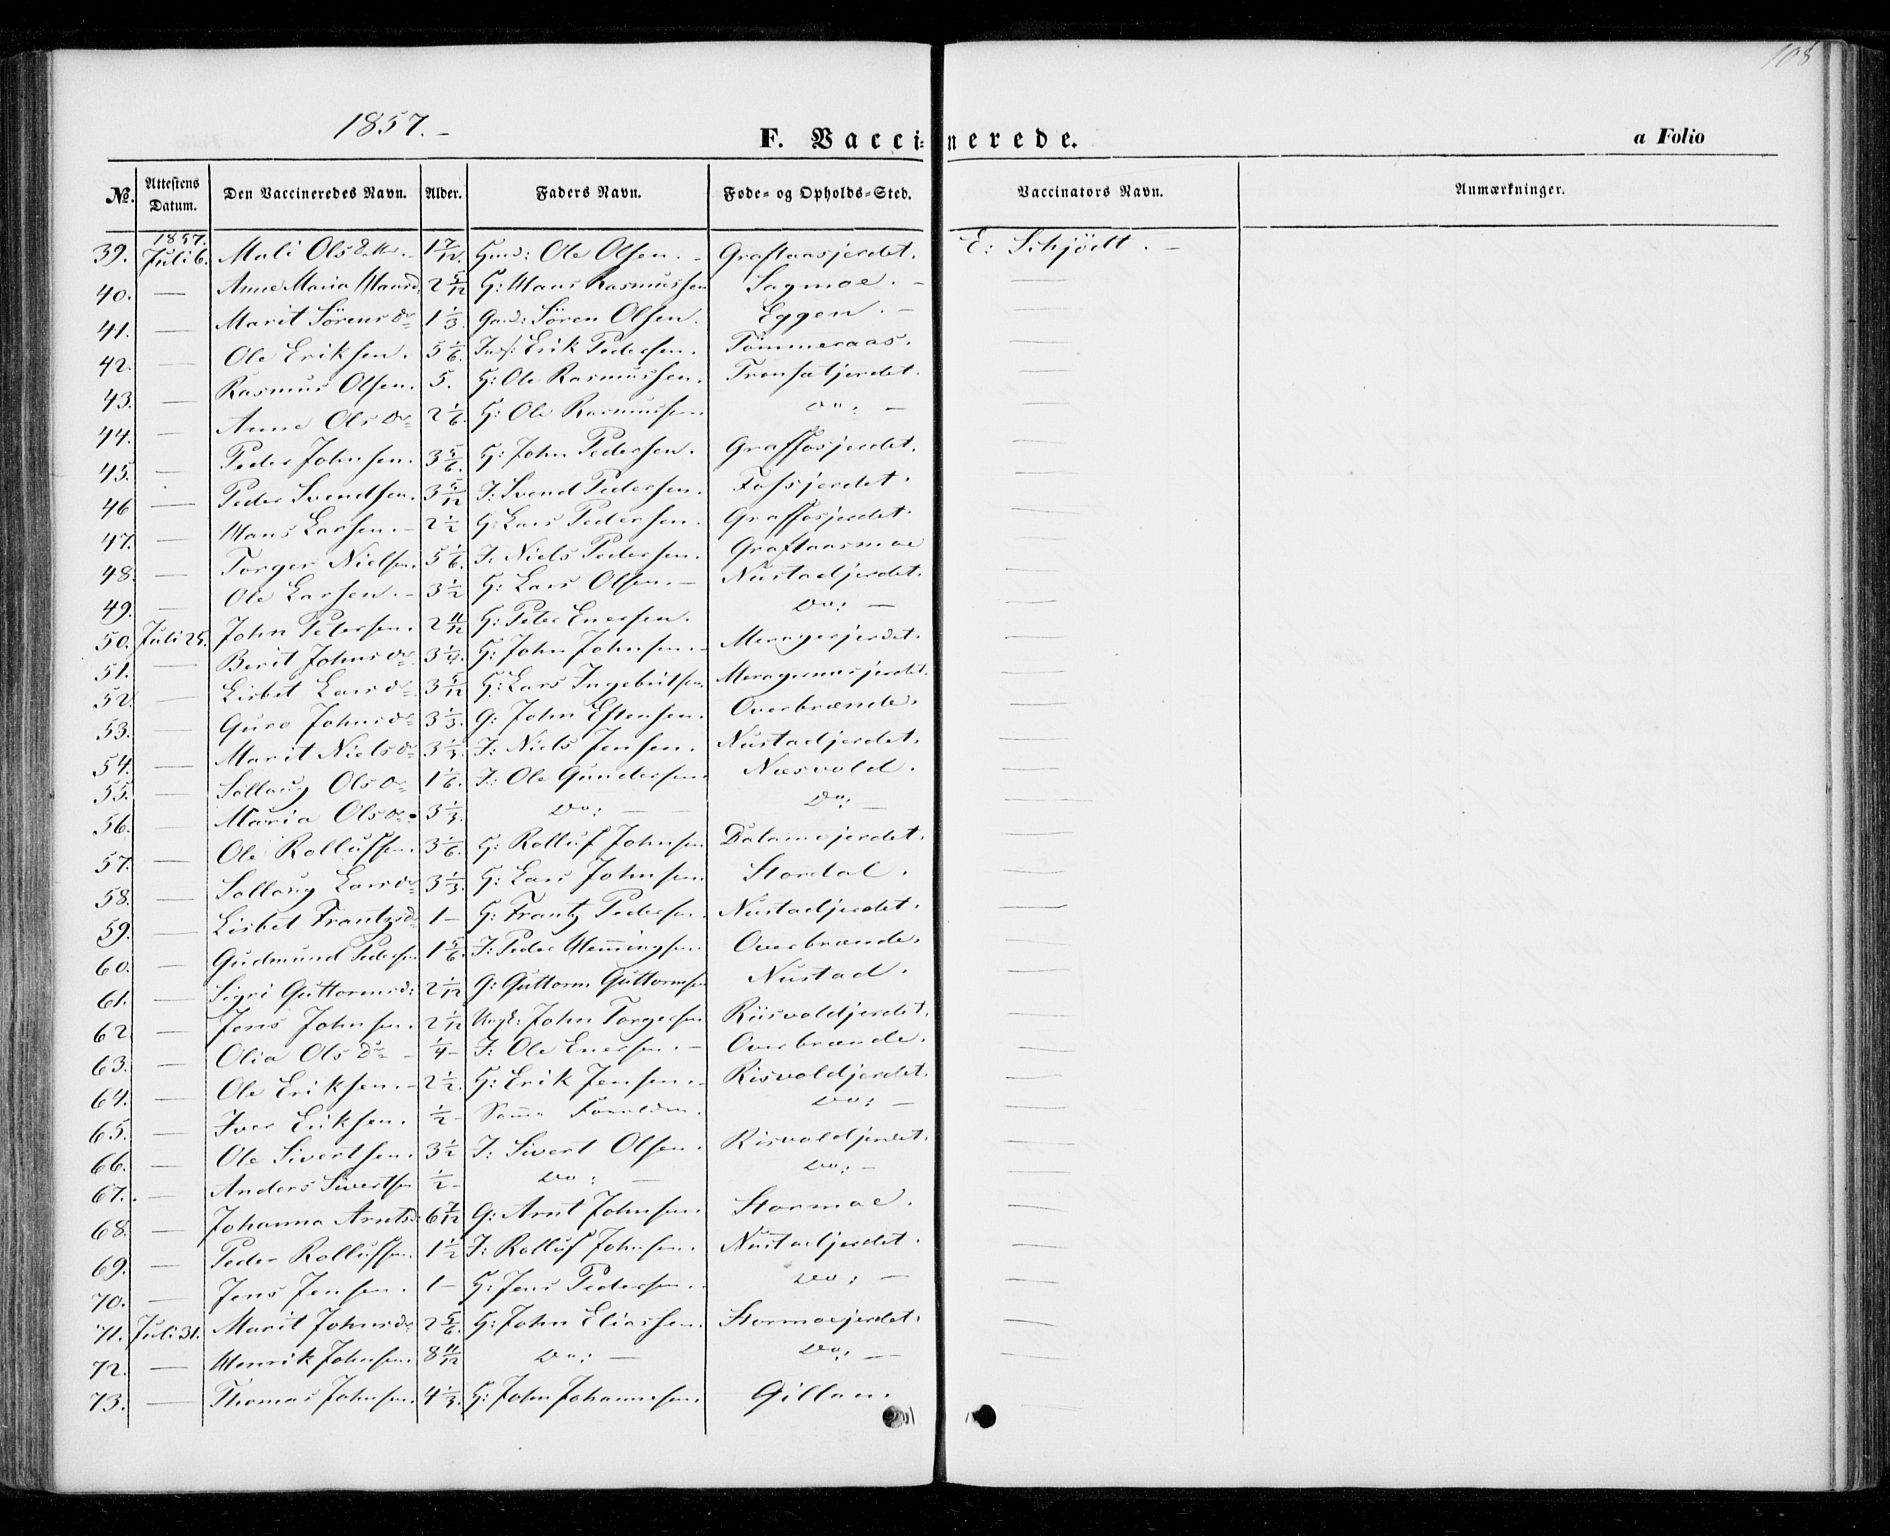 108
1857.-
F. Vaccinerede.
a Folio
No. Attestens Datum. Den Vaccineredes Navn. Alder. Faders Navn. Føde- og Opholds-Sted. Vaccinators Navn. Anmærkninger.
39. 1857. Juli 6. Mali Olsdtr. 1 7/12. Gmd: Ole Olsen. - Graftaasjerdet. E: Schjödt. -
40. — Anne Maria Hansd. 2 5/12 H: Hans Rasmussen Sagmoe. - —
41. — Marit Sörensdr 1 1/3. Gmd: Sören Olsen. Eggen. - —
42. — Ole Eriksen. 5 1/6. Inds: Erik Pedersen. Tömmeraas. —
43. — Rasmus Olsen. 5. H: Ole Rasmussen. Trönsetjerdet. —
44. — Anne Olsdr 2 1/6. H: Ole Rasmussen. Do: - —
45. — Peder Johnsen. 3 5/6. H: John Pedersen. Graffosjerdet. —
46 — Peder Svendsen. 3 5/12 I: Svend Pedersen. Fossjerdet. —
47. — Hans Larsen. - 2 1/2 H: Lars Pedersen. Graffosjerdet. —
48. — Torger Nielsen. 5 1/6. I: Niels Pedersen. Graftaasmoe —
49. — Ole Larsen. - 3 1/2 H: Lars Olsen. - Nustadjerdet. —
50. Juli 25. John Petersen. 2 11/12 H: Peter Enersen. Do: - —
51. — Berit Johnsdr 3 1/4. H: John Johnsen. - Meragerjerdet. —
52. — Lisbet Larsdr 3 5/12 H: Lars Ingebritsen. Meragernesjerdet. —
53. — Guro Johnsdr 3 1/3. G: John Estensen. Overbrænde. —
54. — Marit Nielsdr 3 1/3. I: Niels Jensen. Nustadjerdet. —
55. — Sollaug Olsdr 1 1/6. I: Ole Gundersen. Næsvold. —
56. — Maria Olsdr 3 1/3. Do: - Do: - —
57. — Ole Rolluffsen. 3 1/6. H: Rolluf Johnsen Dalamojerdet. —
58. — Sollaug Larsdr 3 1/3. H: Lars Johnsen Stordal. —
59. — Lisbet Frantzsd. 1 - H: Frantz Pedersen. Nustadjerdet. —
60. — Gudmund Pedersen 1 5/6. I: Peder Hemingsen. Overbrænde. —
61. — Sigri Guttormsd: 2 1/12 G: Guttorm Guttormsen Nustad. —
62 — Jens Johnsen. 2 1/12 Ungk: John Torgersen Riisvoldjerdet. —
63. — Olia Olsdr - 1/4 - I: Ole Enersen. - Overbrænde. —
64. — Ole Eriksen. - 2 1/2. H: Erik Jensen. - Risvoldjerdet. —
65. — Iver Eriksen. 1/2 - Samme Forældre. Do: - —
66. — Ole Sivertsen. 3 1/2 I: Sivert Olsen. Risvoldjerdet. —
67. — Anders Sivertsen 1/2 - Do: - Do: - —
68. — Johanna Arntsd: 6 7/12 G: Arnt Johnsen. Stormoe. —
69. — Peder Rolluffsen. 1 1/2 I: Rolluf Johnsen. Nustadjerdet. —
70. — Jens Jensen. 1 - H: Jens Pedersen. Do: - —
71. Juli 31. Marit Johnsdr 2 5/6. H: John Eliassen. Stormoejerdet. —
72. — Henrik Johnsen. 8 11/12 Do: - Do: - —
73. — Thomas Johnsen. 4 1/3. H: John Johannesen. Gillan. —